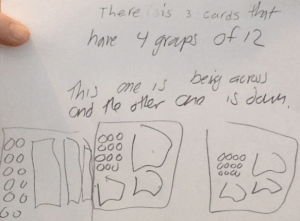 There is is 3 cards that
have 4 groups of 12
This one is being across
and the other one is down.